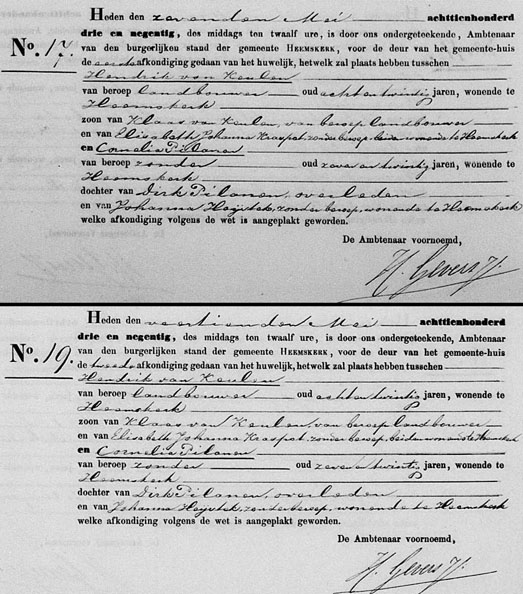 Heden den zevenden Mei achttienhonderd
drie en negentig, des middags ten twaalf ure, is door ons ondergeteekende, Ambtenaar
No. 17. van den burgerlijken stand der gemeente Heemskerk, voor de deur van het gemeente-huis
de eerste afkondiging gedaan van het huwelijk, hetwelk zal plaats hebben tusschen
Hendrik van Keulen
van beroep landbouwer oud acht en twintig jaren, wonende te
Heemskerk
zoon van Klaas van Keulen, van beroep landbouwer
en van Elisabeth Johanna Kraspot, zonder beroep, beiden wonende te Heemskerk
en Cornelia Pilanen
van beroep zonder oud zeven en twintig jaren, wonende te
Heemskerk
dochter van Dirk Pilanen, overleden
en van Johanna Heijvtek, zonder beroep, wonende te Heemskerk
welke afkondiging volgens de wet is aangeplakt geworden.
De Ambtenaar voornoemd,
H. Gevers
Heden den veertienden Mei achttienhonderd
drie en negentig, des middags ten twaalf ure, is door ons ondergeteekende, Ambtenaar
No. 19. van den burgerlijken stand der gemeente Heemskerk, voor de deur van het gemeente-huis
de tweede afkondiging gedaan van het huwelijk, hetwelk zal plaats hebben tusschen
Hendrik van Keulen
van beroep landbouwer oud acht en twintig jaren, wonende te
Heemskerk
zoon van Klaas van Keulen, van beroep landbouwer
en van Elisabeth Johanna Kraspot, zonder beroep, beiden wonende te Heemskerk
en Cornelia Pilanen
van beroep zonder oud zeven en twintig jaren, wonende te
Heemskerk
dochter van Dirk Pilanen, overleden
en van Johanna Heijvtek, zonder beroep, wonende te Heemskerk
welke afkondiging volgens de wet is aangeplakt geworden.
De Ambtenaar voornoemd,
H. Gevers